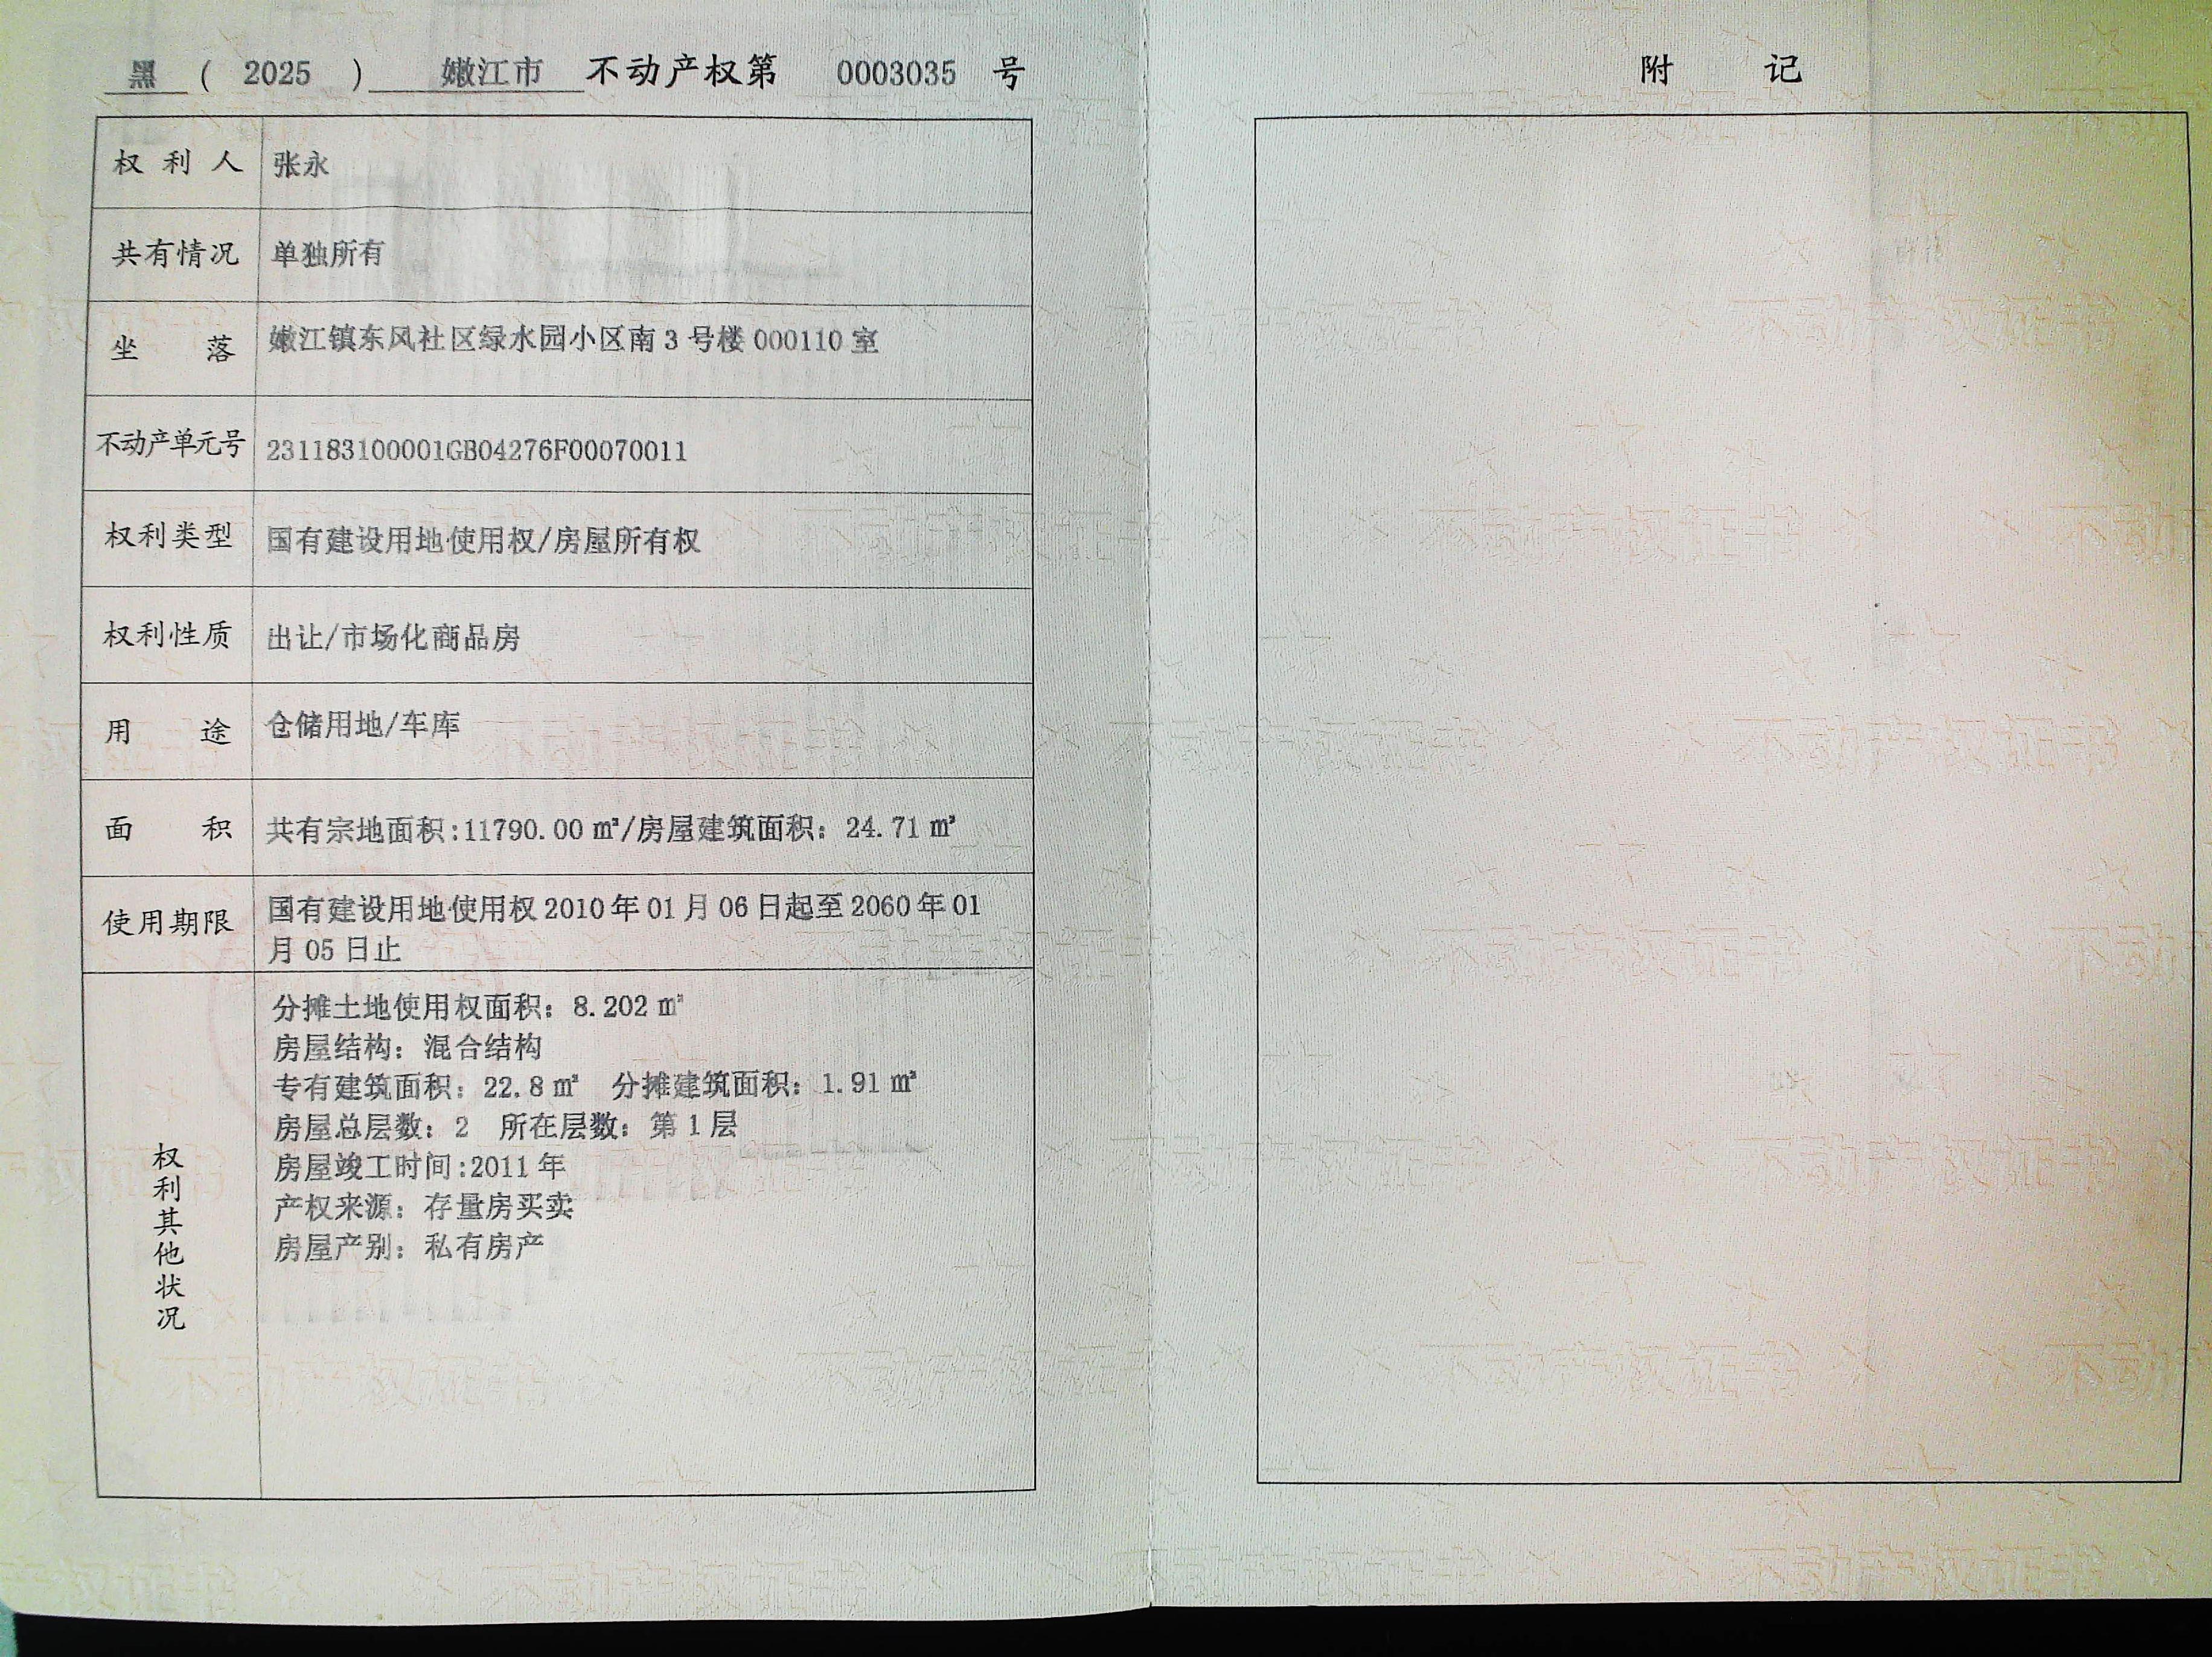 黑 ( 2025 ) 嫩江市 不动产权第 0003035 号
权利人 张永
共有情况 单独所有
坐落 嫩江镇东风社区绿水园小区南3号楼000110室
不动产单元号 231183100001GB04276F00070011
权利类型 国有建设用地使用权/房屋所有权
权利性质 出让/市场化商品房
用途 仓储用地/车库
面积 共有宗地面积:11790.00㎡/房屋建筑面积：24.71㎡
使用期限 国有建设用地使用权2010年01月06日起至2060年01
月05日止
权利其他状况
分摊土地使用权面积：8.202㎡
房屋结构：混合结构
专有建筑面积：22.8㎡ 分摊建筑面积：1.91㎡
房屋总层数：2 所在层数：第1层
房屋竣工时间:2011年
产权来源：存量房买卖
房屋产别：私有房产
附记